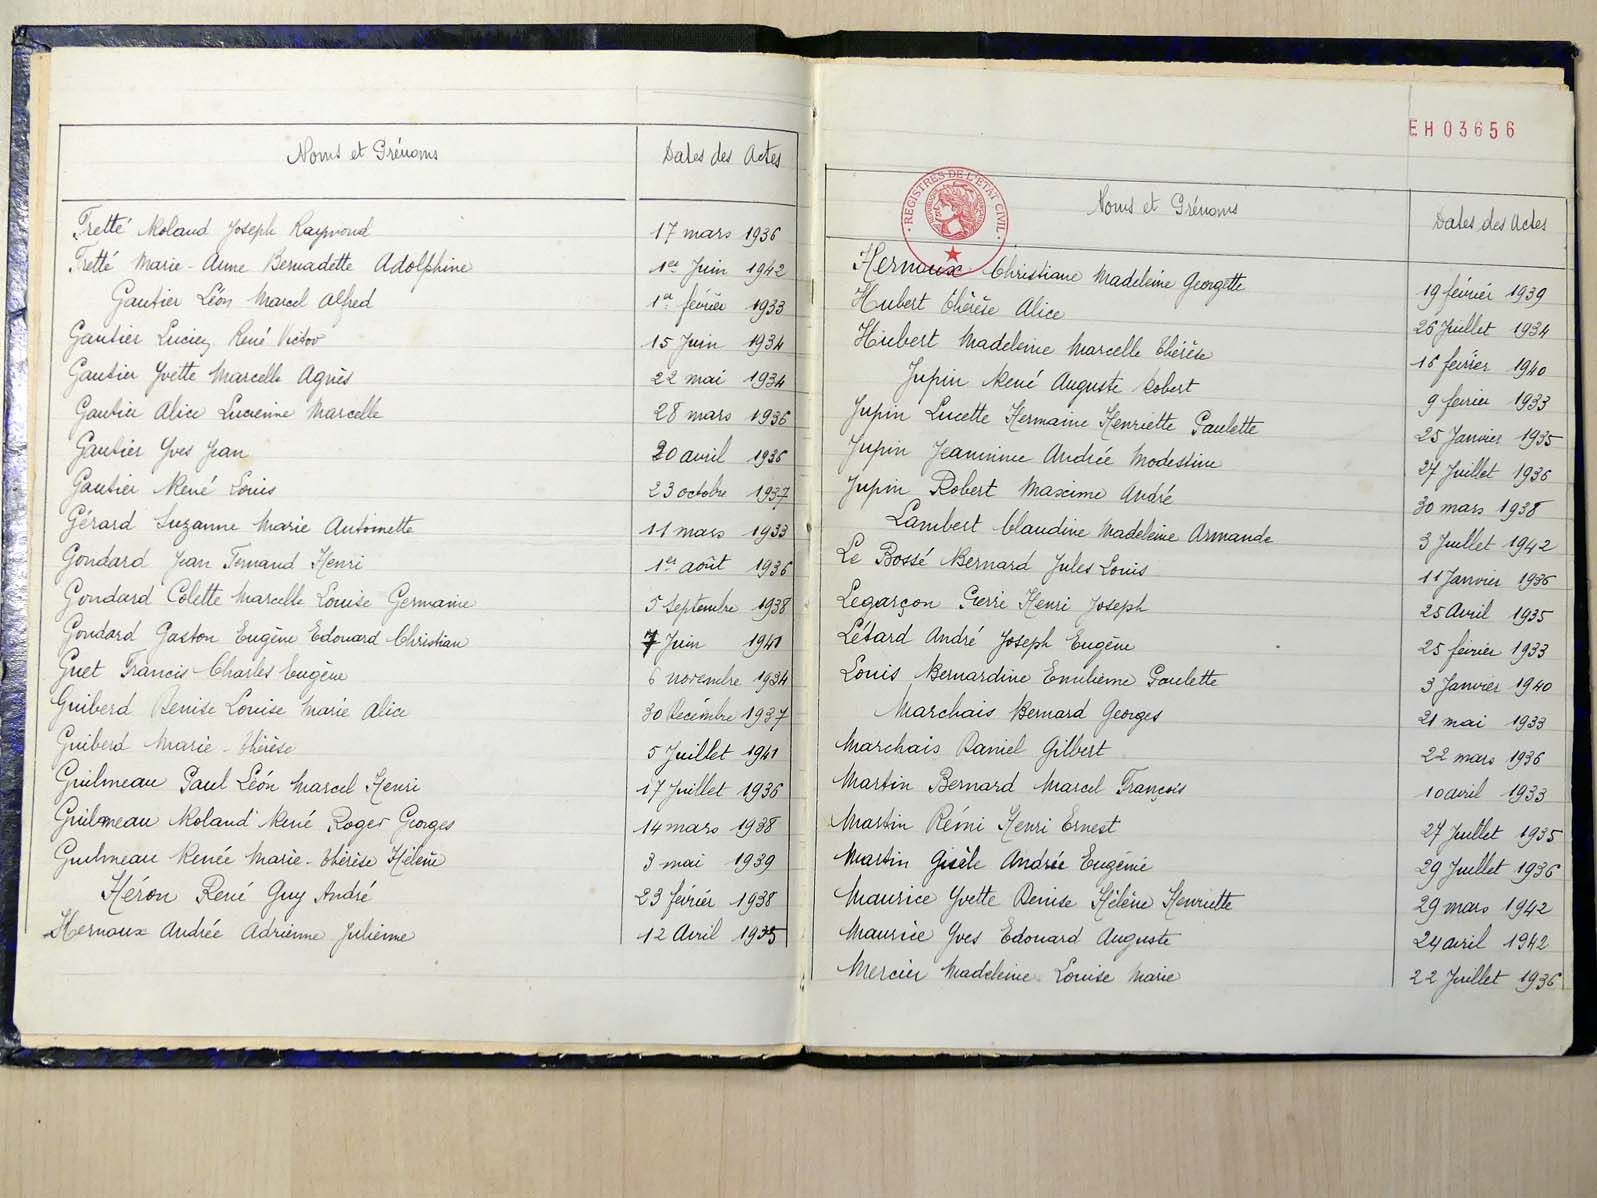 Noms et Prénoms Dates des Actes
Fretté Roland Joseph Raymond 17 mars 1936
Fretté Marie-Anne Bernadette Adolphine 1er Juin 1942
Gautier Léon Marcel Alfred 1er février 1933
Gautier Lucien René Victor 15 Juin 1934
Gautier Yvette Marcelle Agnès 22 mai 1934
Gautier Alice Lucienne Marcelle 28 mars 1936
Gautier Yves Jean 20 avril 1936
Gautier René Louis 23 octobre 1937
Gérard Suzanne Marie Antoinette 11 mars 1933
Gondard Jean Fernand Henri 1er août 1936
Gondard Colette Marcelle Louise Germaine 5 Septembre 1938
Gondard Gaston Eugène Edouard Christian 7 Juin 1941
Guet Francis Charles Eugène 6 novembre 1934
Guiberd Denise Louise Marie Alice 30 Décembre 1937
Guiberd Marie-Thérèse 5 Juillet 1941
Guilmeau Paul Léon Marcel Henri 17 Juillet 1936
Guilmeau Roland René Roger Georges 14 mars 1938
Guilmeau Renée Marie-Thérèse Hélène 3 mai 1939
Héron René Guy André 23 février 1938
Hernoux Andrée Adrienne Julienne 12 Avril 1935
EH03656
REGISTRES DE L'ETAT CIVIL
Noms et Prénoms Dates des Actes
Hernoux Christiane Madeleine Georgette 19 février 1939
Hubert Thérèse Alice 26 Juillet 1934
Hubert Madeleine Marcelle Thérèse 16 février 1940
Jupin René Auguste Robert 9 février 1933
Jupin Lucette Hermaine Henriette Paulette 25 Janvier 1935
Jupin Jeannine Andrée Modestine 27 Juillet 1936
Jupin Robert Maxime André 30 mars 1938
Lambert Claudine Madeleine Armande 3 Juillet 1942
Le Bossé Bernard Jules Louis 11 Janvier 1936
Legarçon Pierre Henri Joseph 25 Avril 1935
Létard André Joseph Eugène 25 février 1933
Louis Bernardine Emilienne Paulette 3 Janvier 1940
Marchais Bernard Georges 21 mai 1933
Marchais Daniel Gilbert 22 mars 1936
Martin Bernard Marcel François 10 avril 1933
Martin Rémi Henri Ernest 27 Juillet 1935
Martin Gisèle Andrée Eugénie 29 Juillet 1936
Maurice Yvette Denise Hélène Henriette 29 mars 1942
Maurice Yves Edouard Auguste 24 avril 1942
Mercier Madeleine Louise Marie 22 Juillet 1936